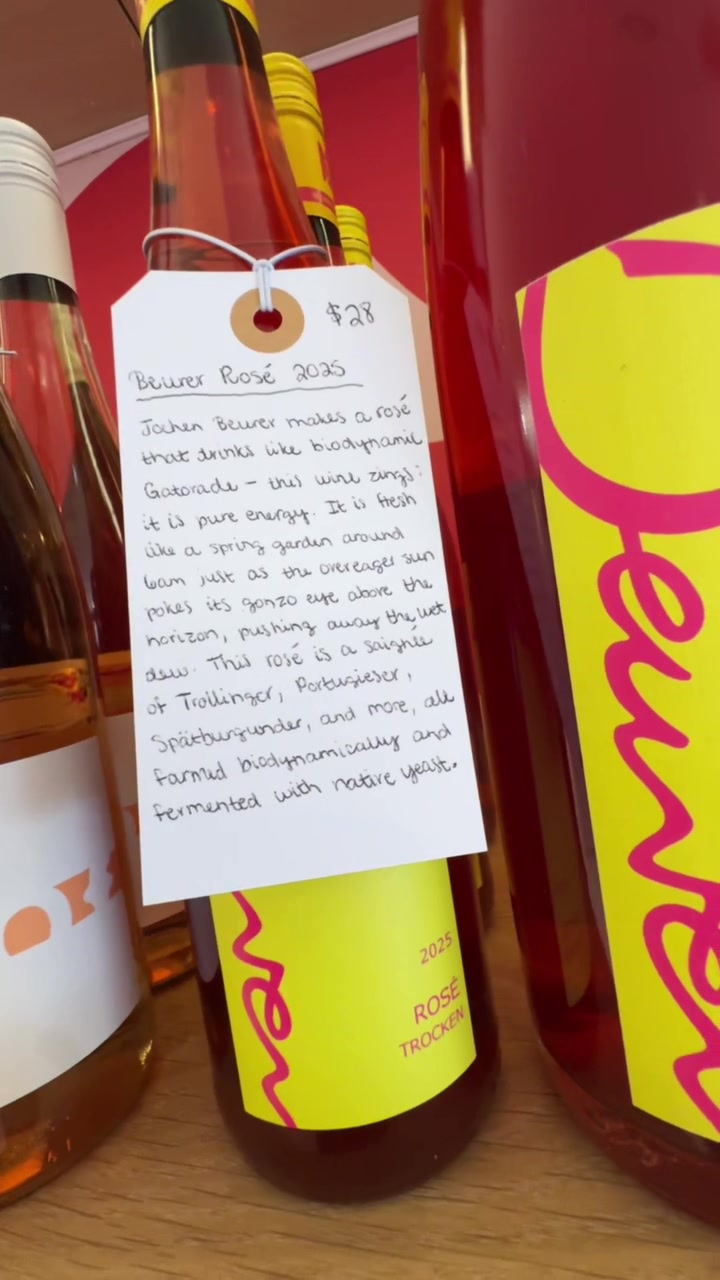 $28
Beurer Rosé 2025
Jochen Beurer makes a rosé
that drinks like biodynamic
Gatorade - this wine zings:
it is pure energy. It is fresh
like a spring garden around
6am just as the overeager sun
pokes its gonzo eye above the
horizon, pushing away the wet
dew. This rosé is a saignée
of Trollinger, Portugieser,
Spätburgunder, and more, all
farmed biodynamically and
fermented with native yeast.
2025
ROSÉ
TROCKEN
Beurer